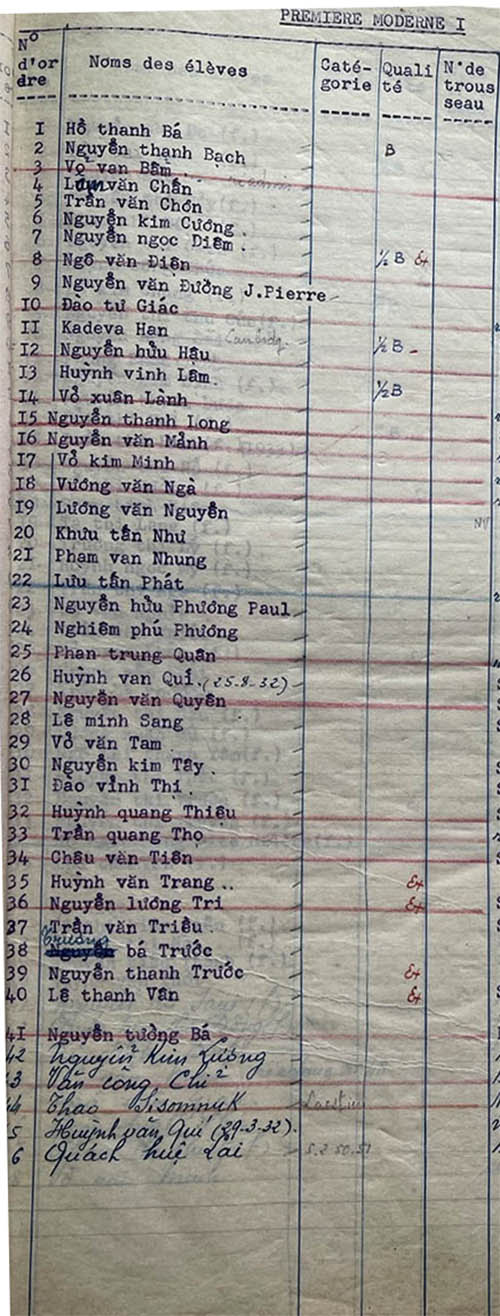 PREMIERE MODERNE I
N° d'or dre Noms des élèves Caté- gorie Quali té N°de trous seau
I Hồ thanh Bá
2 Nguyễn thạnh Bạch B
3 Vỏ van Bầm
4 Lâm văn Chấn
5 Trần văn Chón
6 Nguyễn kim Cương
7 Nguyễn ngọc Diêm
8 Ngô văn Điện ½ B Ex
9 Nguyễn văn Đường J.Pierre
IO Đào tư Giác
II Kadeva Han Cambodg.
I2 Nguyễn hửu Hậu ½ B
I3 Huỳnh vinh Lâm
I4 Vỏ xuân Lành ½ B
I5 Nguyễn thanh Long
I6 Nguyễn văn Mảnh
I7 Vỏ kim Minh
I8 Vương văn Ngà
I9 Lương văn Nguyên
20 Khưu tấn Như
2I Phạm van Nhung
22 Lưu tấn Phát
23 Nguyễn hửu Phương Paul
24 Nghiêm phú Phương
25 Phan trung Quân
26 Huỳnh van Quí (25-8-32)
27 Nguyễn văn Quyên
28 Lê minh Sang
29 Vỏ văn Tam
30 Nguyễn kim Tây
3I Đào vỉnh Thị
32 Huỳnh quang Thiệu
33 Trần quang Thọ
34 Châu văn Tiên
35 Huỳnh văn Trang .. Ex
36 Nguyễn lương Tri Ex
37 Trần văn Triều
Trương
38 Nguyễn bá Trước
39 Nguyễn thanh Trước Ex
40 Lê thanh Vân Ex
4I Nguyễn tường Bá
42 Nguyễn Kim Lương
3 Văn công Chi
44 Thao Sisomnuk Laotien
5 Huỳnh văn Quí (29-3-32).
6 Quách huệ Lai 5.2.50.51